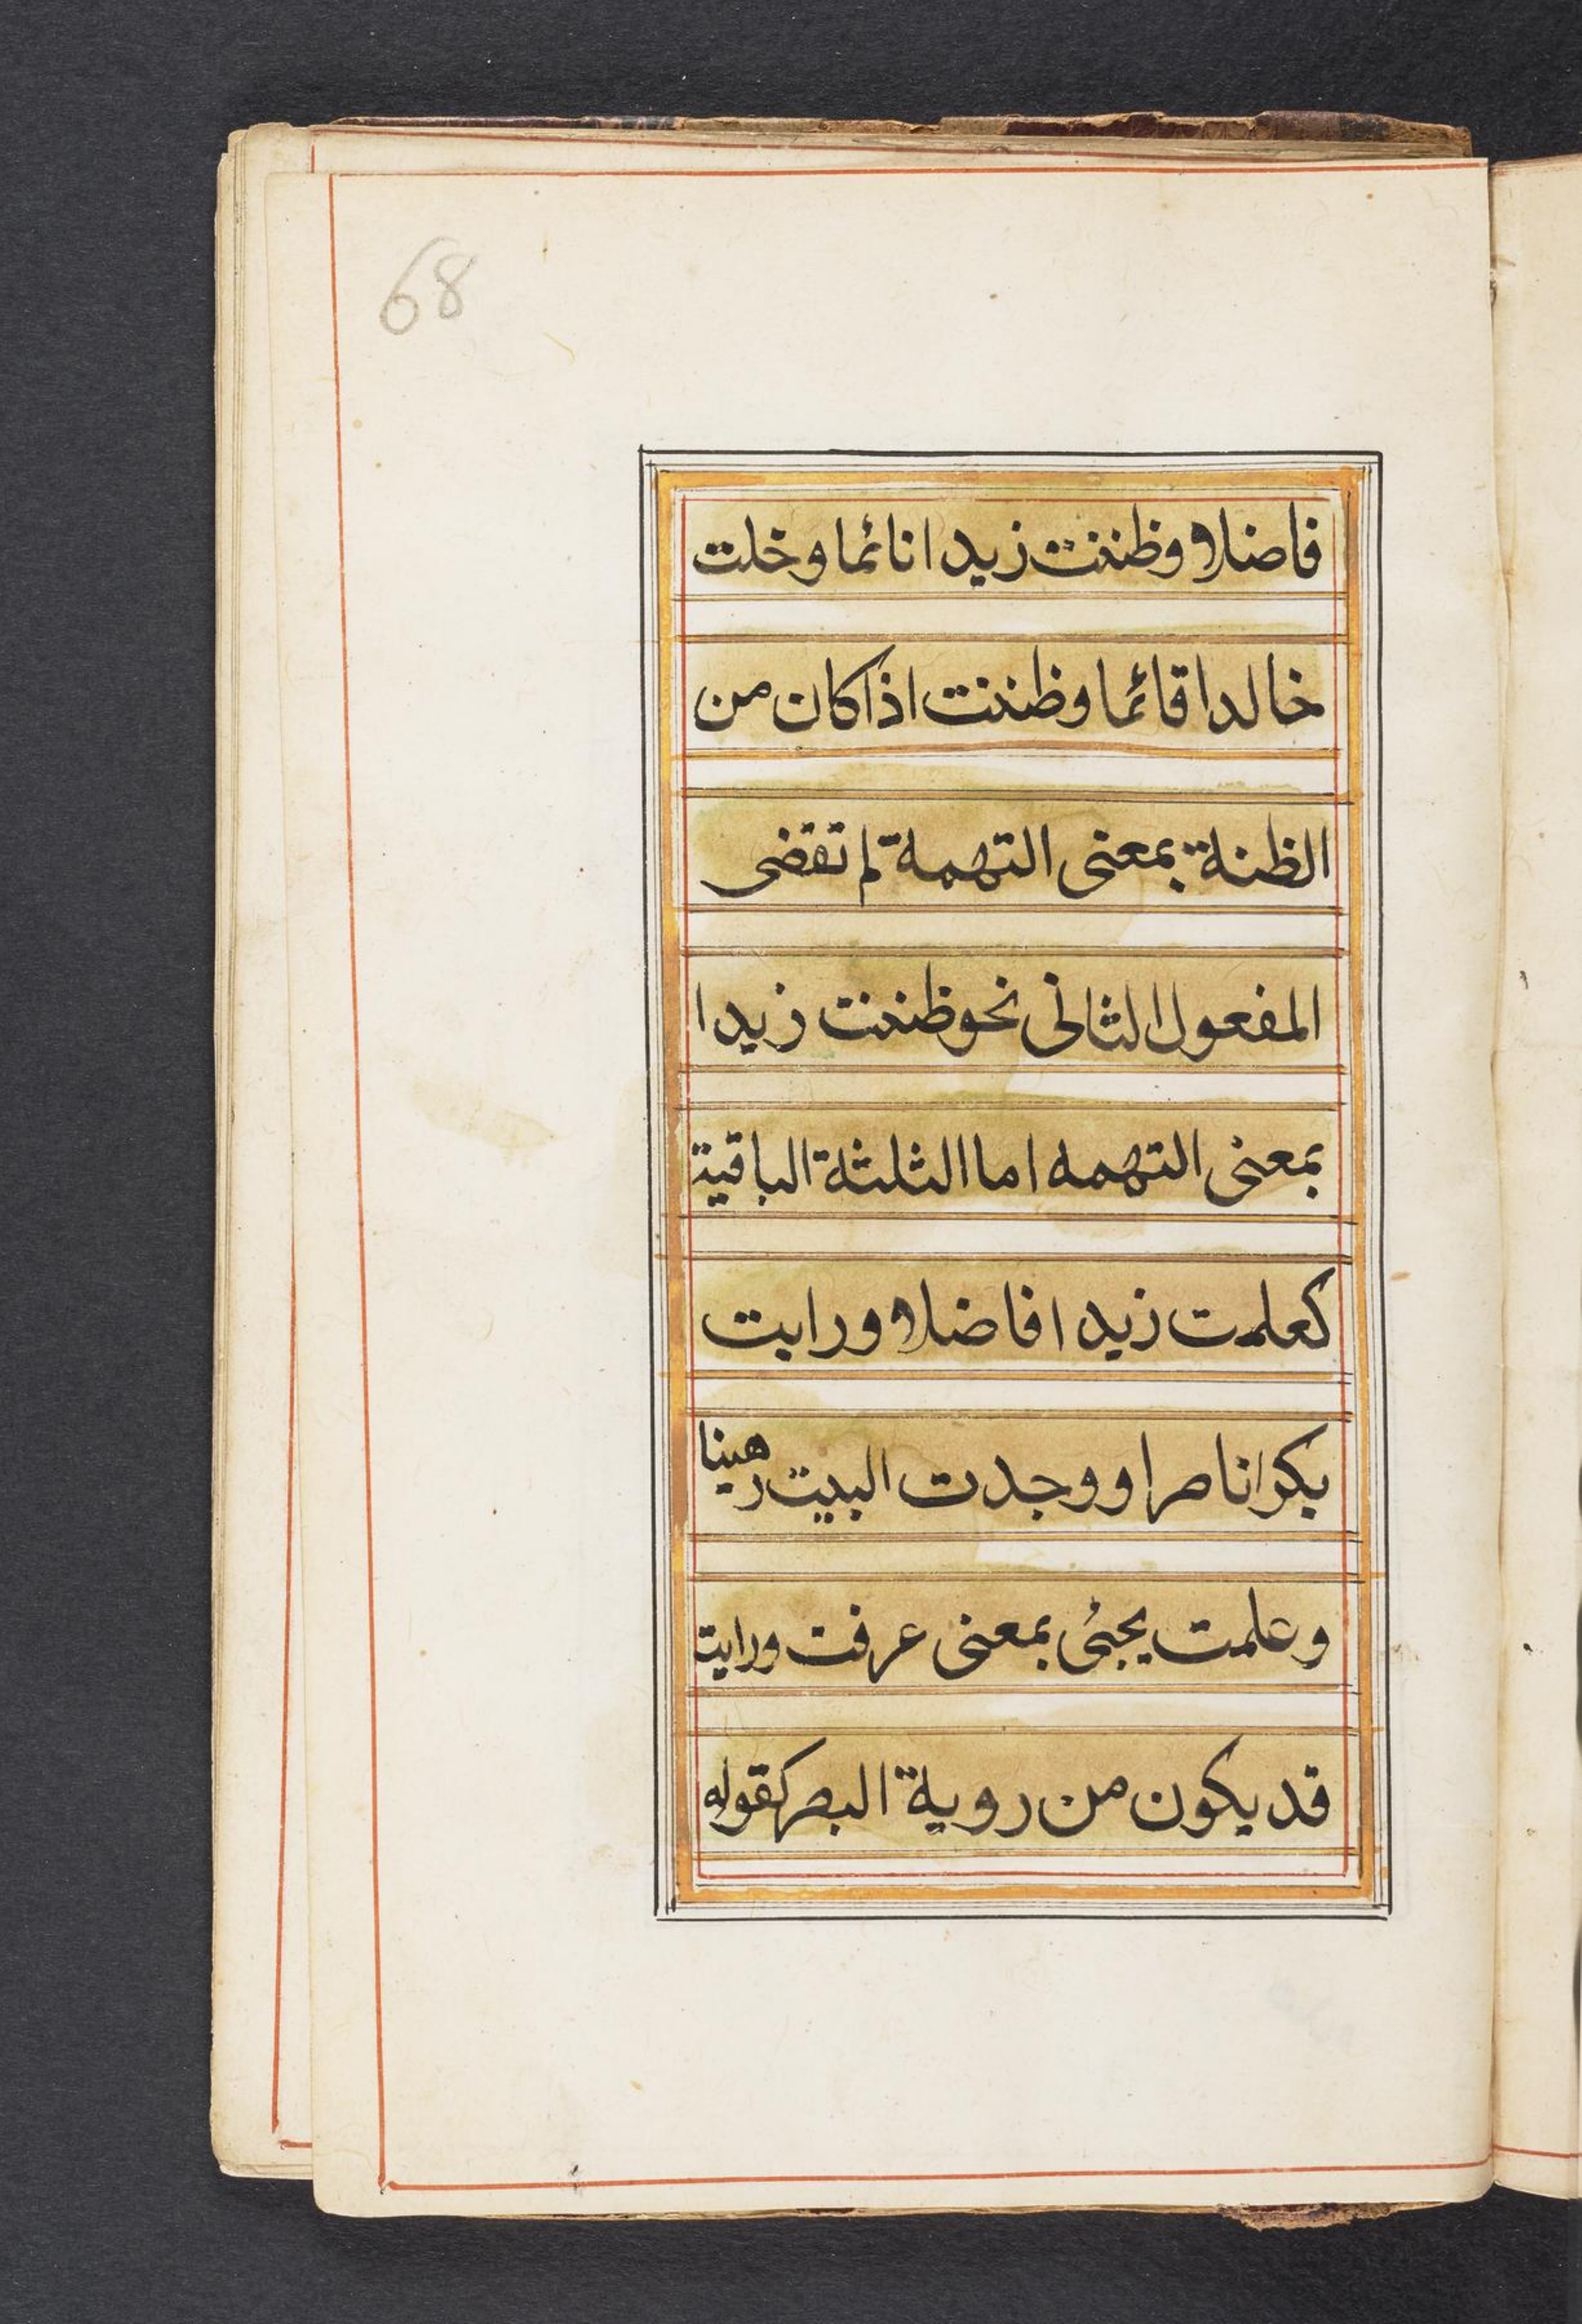 68
فاضلا وظننت زيدا نائما وخلت
خالدا قائما وظننت اذا كان من
الظنة بمعنى التهمة لم تقضى
المفعول الثانى نحو ظننت زيدا
بمعنى التهمه اما الثلثة الباقية
كعلمت زيدا فاضلا ورايت
بكرا ناصرا ووجدت البيت رهينا
وعلمت يجئى بمعنى عرفت ورايت
قد يكون من روية البصر كقوله